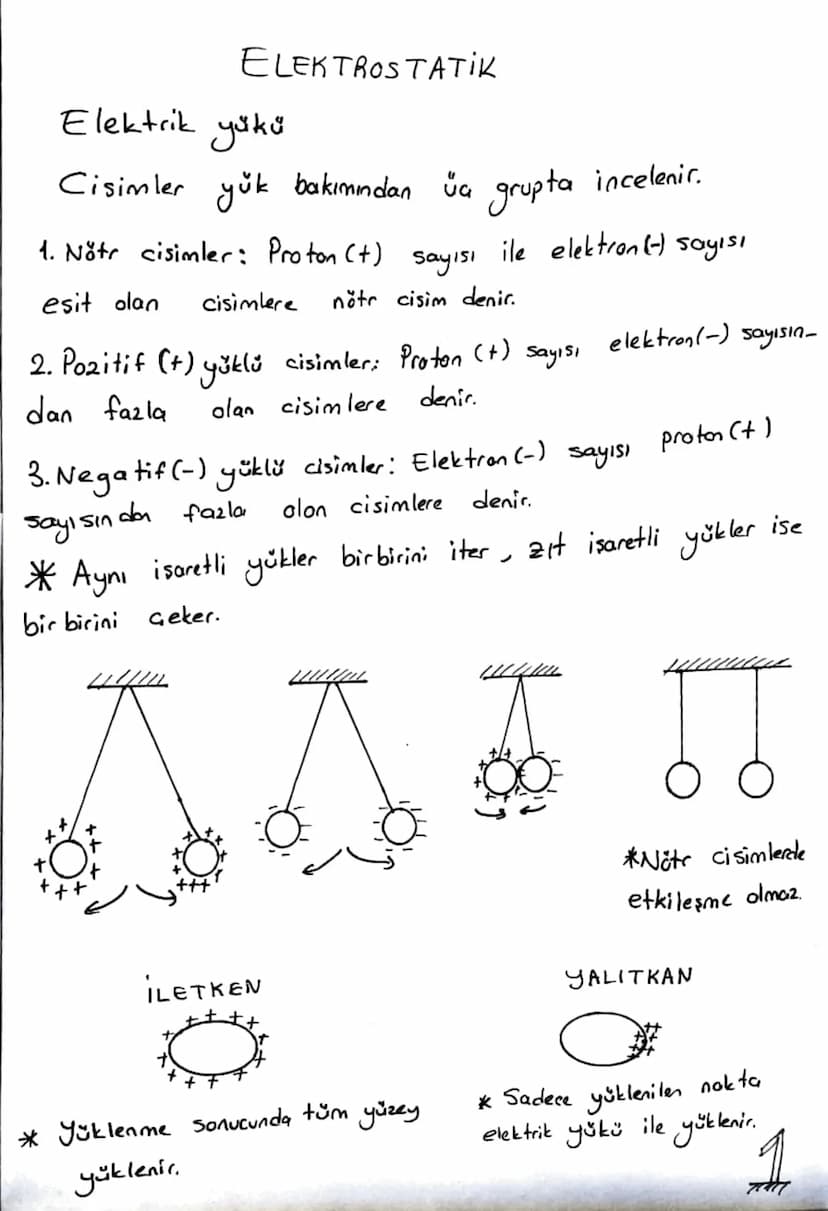 ELEKTROSTATİK
Elektrik yükü
Cisimler yük bakımından üç grupta incelenir.
1. Nötr cisimler: Proton (+) sayısı ile elektron (-) sayısı
eşit olan cisimlere nötr cisim denir.
2. Pozitif (+) yüklü cisimler: Proton (+) sayısı elektron(-) sayısın-
dan fazla olan cisimlere denir.
3. Negatif (-) yüklü cisimler: Elektron (-) sayısı proton (+)
sayısından fazla olan cisimlere denir.
* Aynı işaretli yükler birbirini iter, zıt işaretli yükler ise
birbirini çeker.
*Nötr cisimlerde
etkileşme olmaz.
İLETKEN
YALITKAN
* Yüklenme sonucunda tüm yüzey
yüklenir.
* Sadece yüklenilen nokta
elektrik yükü ile yüklenir.
1